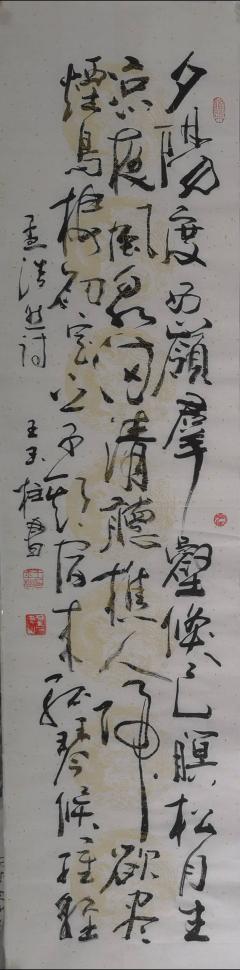 夕陽度西嶺羣壑倏已暝松月生
凉夜風泉满清聽樵人歸欲尽
煙鳥棲初定之子期宿来孤琴候蘿徑
孟浩然詩
王玉柱書